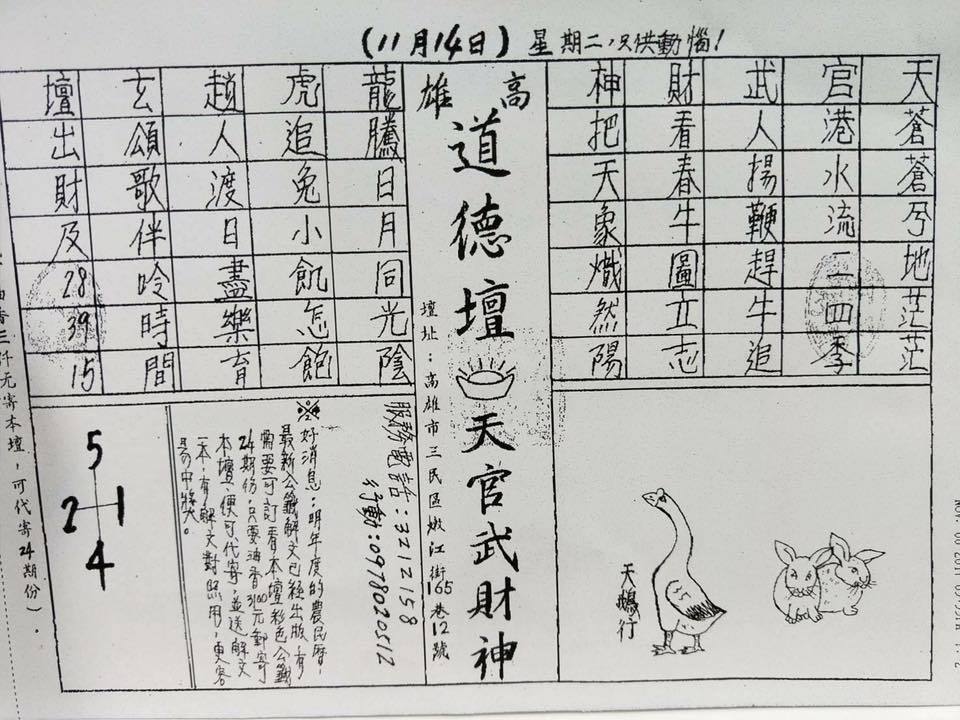 (11月14日) 星期二,只供動惱!
天蒼蒼兮地茫茫
官港水流二四季
武人揚鞭趕牛追
財看春牛圖立志
神把天象熾然陽
高雄
道德壇
天官武財神
壇址:高雄市三民區嫩江街165巷12號
龍騰日月同光陰
虎追兔小飢怎飽
趙人渡日盡樂育
玄頌歌伴吟時間
壇出財及28 39 15
服務電話:3212158
行動:0978020512
※好消息:明年度的農民曆,
最新公籤解文已經出版,有
需要可訂看本壇彩色公籤
24期份,只要油香3100元郵寄
本壇,便可代寄,並送解文
一本,有解文對照用,更容
易中獎。
5
2 1
4
天鵝行
三仟元寄本壇,可代寄24期份)